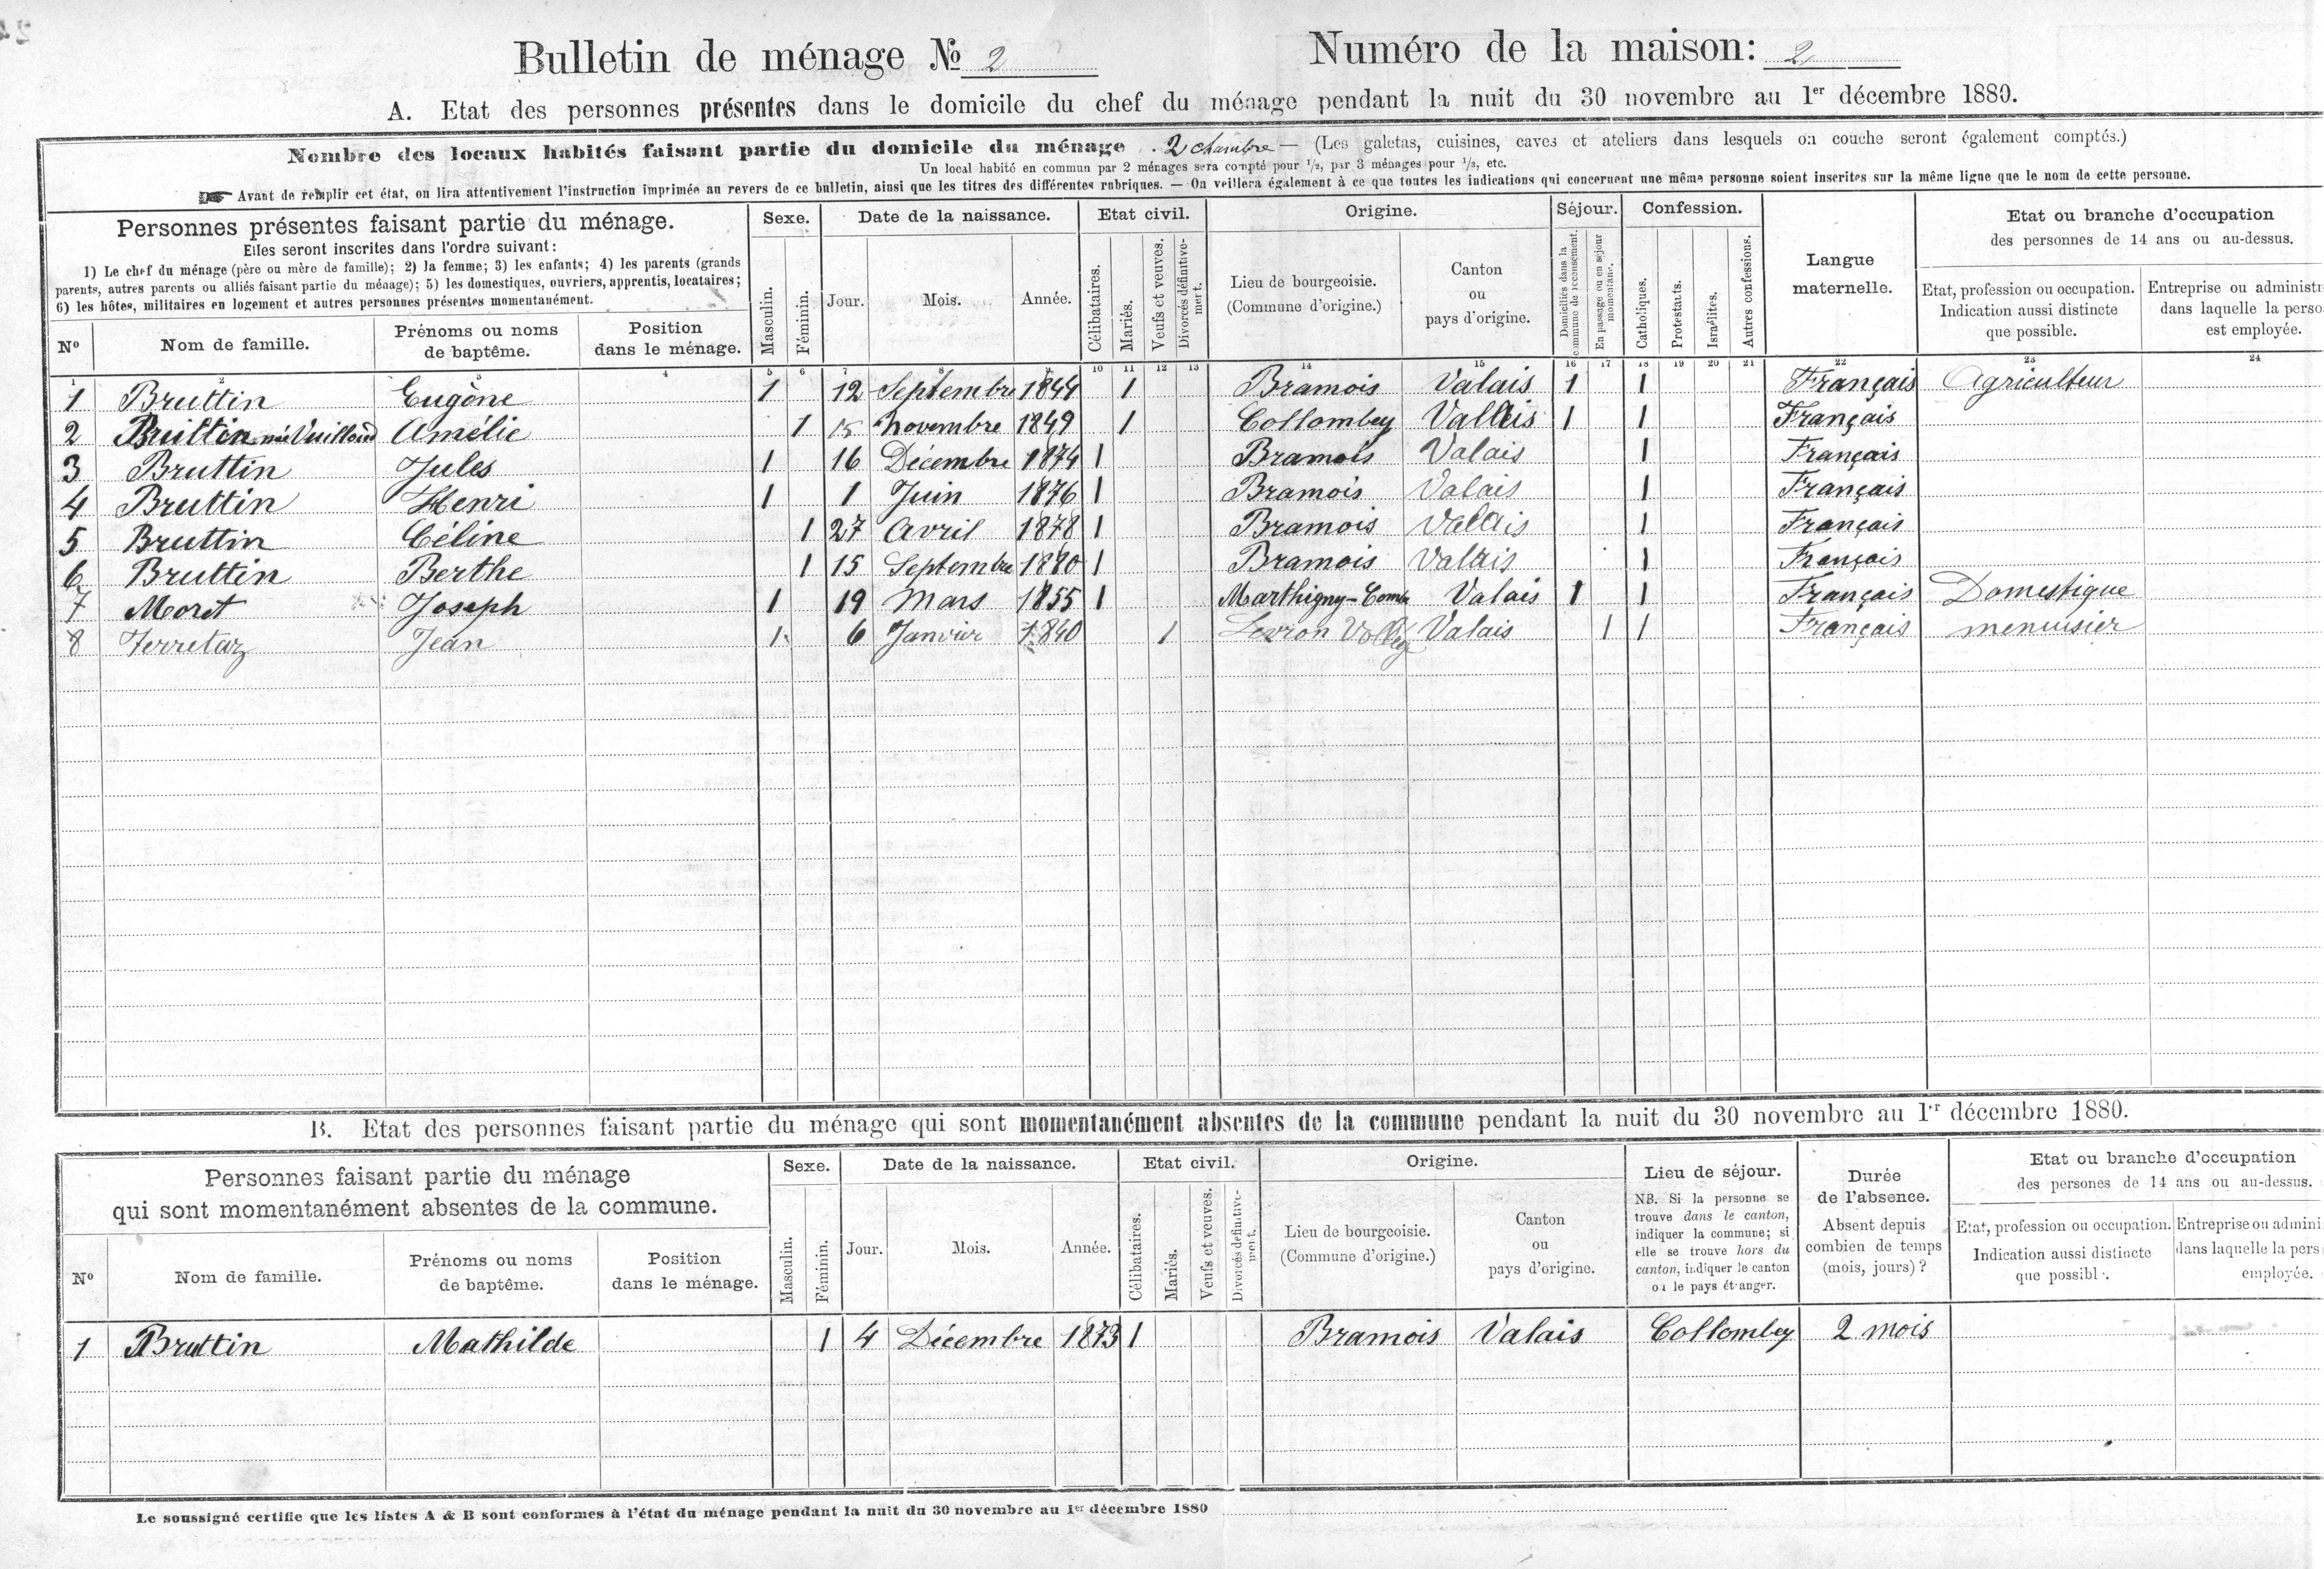 Bulletin de ménage № 2 Numéro de la maison: 2
A. Etat des personnes présentes dans le domicile du chef du ménage pendant la nuit du 30 novembre au 1er décembre 1880.
Nombre des locaux habités faisant partie du domicile du ménage 2 chambre — (Les galetas, cuisines, caves et ateliers dans lesquels on couche seront également comptés.)
Un local habité en commun par 2 ménages sera compté pour 1/2, par 3 ménages pour 1/3, etc.
Avant de remplir cet état, on lira attentivement l'instruction imprimée au revers de ce bulletin, ainsi que les titres des différentes rubriques. — On veillera également à ce que toutes les indications qui concernent une même personne soient inscrites sur la même ligne que le nom de cette personne.
Personnes présentes faisant partie du ménage.
Elles seront inscrites dans l'ordre suivant:
1) Le chef du ménage (père ou mère de famille); 2) la femme; 3) les enfants; 4) les parents (grands
parents, autres parents ou alliés faisant partie du ménage); 5) les domestiques, ouvriers, apprentis, locataires;
6) les hôtes, militaires en logement et autres personnes présentes momentanément.
Nº
Nom de famille.
Prénoms ou noms
de baptême.
Position
dans le ménage.
Sexe.
Masculin.
Féminin.
Date de la naissance.
Jour.
Mois.
Année.
Etat civil.
Célibataires.
Mariés.
Veufs et veuves.
Divorcés définitive-
ment.
Origine.
Lieu de bourgeoisie.
(Commune d'origine.)
Canton
ou
pays d'origine.
Séjour.
Domiciliés dans la
commune de recensement.
En passage ou en séjour
momentané.
Confession.
Catholiques.
Protestants.
Israélites.
Autres confessions.
Langue
maternelle.
Etat ou branche d'occupation
des personnes de 14 ans ou au-dessus.
Etat, profession ou occupation.
Indication aussi distincte
que possible.
Entreprise ou administr
dans laquelle la perso
est employée.
1 2 3 4 5 6 7 8 9 10 11 12 13 14 15 16 17 18 19 20 21 22 23 24
1 Bruttin Eugène 1 12 Septembre 1844 1 Bramois Valais 1 1 Français Agriculteur
2 Bruttin née Vuilloud Amélie 1 15 Novembre 1849 1 Collombey Vallais 1 1 Français
3 Bruttin Jules 1 16 Décembre 1874 1 Bramois Valais 1 Français
4 Bruttin Henri 1 1 Juin 1876 1 Bramois Valais 1 Français
5 Bruttin Céline 1 27 Avril 1878 1 Bramois Valais 1 Français
6 Bruttin Berthe 1 15 Septembre 1880 1 Bramois Valais 1 Français
7 Moret Joseph 1 19 Mars 1855 1 Marthigny-Combe Valais 1 1 Français Domestique
8 Terretaz Jean 1 6 Janvier 1840 1 Levron Vollège Valais 1 1 Français menuisier
B. Etat des personnes faisant partie du ménage qui sont momentanément absentes de la commune pendant la nuit du 30 novembre au 1er décembre 1880.
Personnes faisant partie du ménage
qui sont momentanément absentes de la commune.
Nº
Nom de famille.
Prénoms ou noms
de baptême.
Position
dans le ménage.
Sexe.
Masculin.
Féminin.
Date de la naissance.
Jour.
Mois.
Année.
Etat civil.
Célibataires.
Mariés.
Veufs et veuves.
Divorcés définitive-
ment.
Origine.
Lieu de bourgeoisie.
(Commune d'origine.)
Canton
ou
pays d'origine.
Lieu de séjour.
NB. Si la personne se
trouve dans le canton,
indiquer la commune; si
elle se trouve hors du
canton, indiquer le canton
ou le pays étranger.
Durée
de l'absence.
Absent depuis
combien de temps
(mois, jours) ?
Etat ou branche d'occupation
des persones de 14 ans ou au-dessus.
Etat, profession ou occupation.
Indication aussi distincte
que possible.
Entreprise ou admini
dans laquelle la pers
employée.
1 Bruttin Mathilde 1 4 Décembre 1873 1 Bramois Valais Collombey 2 mois
Le soussigné certifie que les listes A & B sont conformes à l'état du ménage pendant la nuit du 30 novembre au 1er décembre 1880